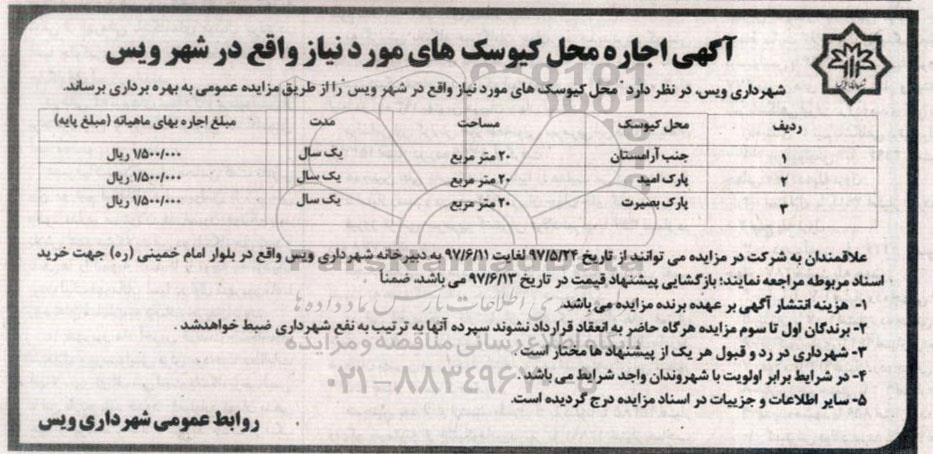 آگهی اجاره محل کیوسک های مورد نیاز واقع در شهر ویس
شهرداری ویس، در نظر دارد "محل کیوسک های مورد نیاز واقع در شهر ویس" را از طریق مزایده عمومی به بهره برداری برساند.
ردیف محل کیوسک مساحت مدت مبلغ اجاره بهای ماهیانه (مبلغ پایه)
۱ جنب آرامستان ۲۰ متر مربع یک سال ۱/۵۰۰/۰۰۰ ریال
۲ پارک امید ۲۰ متر مربع یک سال ۱/۵۰۰/۰۰۰ ریال
۳ پارک بصیرت ۲۰ متر مربع یک سال ۱/۵۰۰/۰۰۰ ریال
علاقمندان به شرکت در مزایده می توانند از تاریخ ۹۷/۵/۲۴ لغایت ۹۷/۶/۱۱ به دبیرخانه شهرداری ویس واقع در بلوار امام خمینی (ره) جهت خرید
اسناد مربوطه مراجعه نمایند؛ بازگشایی پیشنهاد قیمت در تاریخ ۹۷/۶/۱۳ می باشد، ضمناً
۱- هزینه انتشار آگهی بر عهده برنده مزایده می باشد
۲- برندگان اول تا سوم مزایده هرگاه حاضر به انعقاد قرارداد نشوند سپرده آنها به ترتیب به نفع شهرداری ضبط خواهدشد .
۳- شهرداری در رد و قبول هر یک از پیشنهاد ها مختار است .
۴- در شرایط برابر اولویت با شهروندان واجد شرایط می باشد .
۵- سایر اطلاعات و جزییات در اسناد مزایده درج گردیده است.
روابط عمومی شهرداری ویس
ParsNamadData
پایگاه اطلاع رسانی مناقصه و مزایده
۰۲۱-۸۸۳۴۹۶۷۰